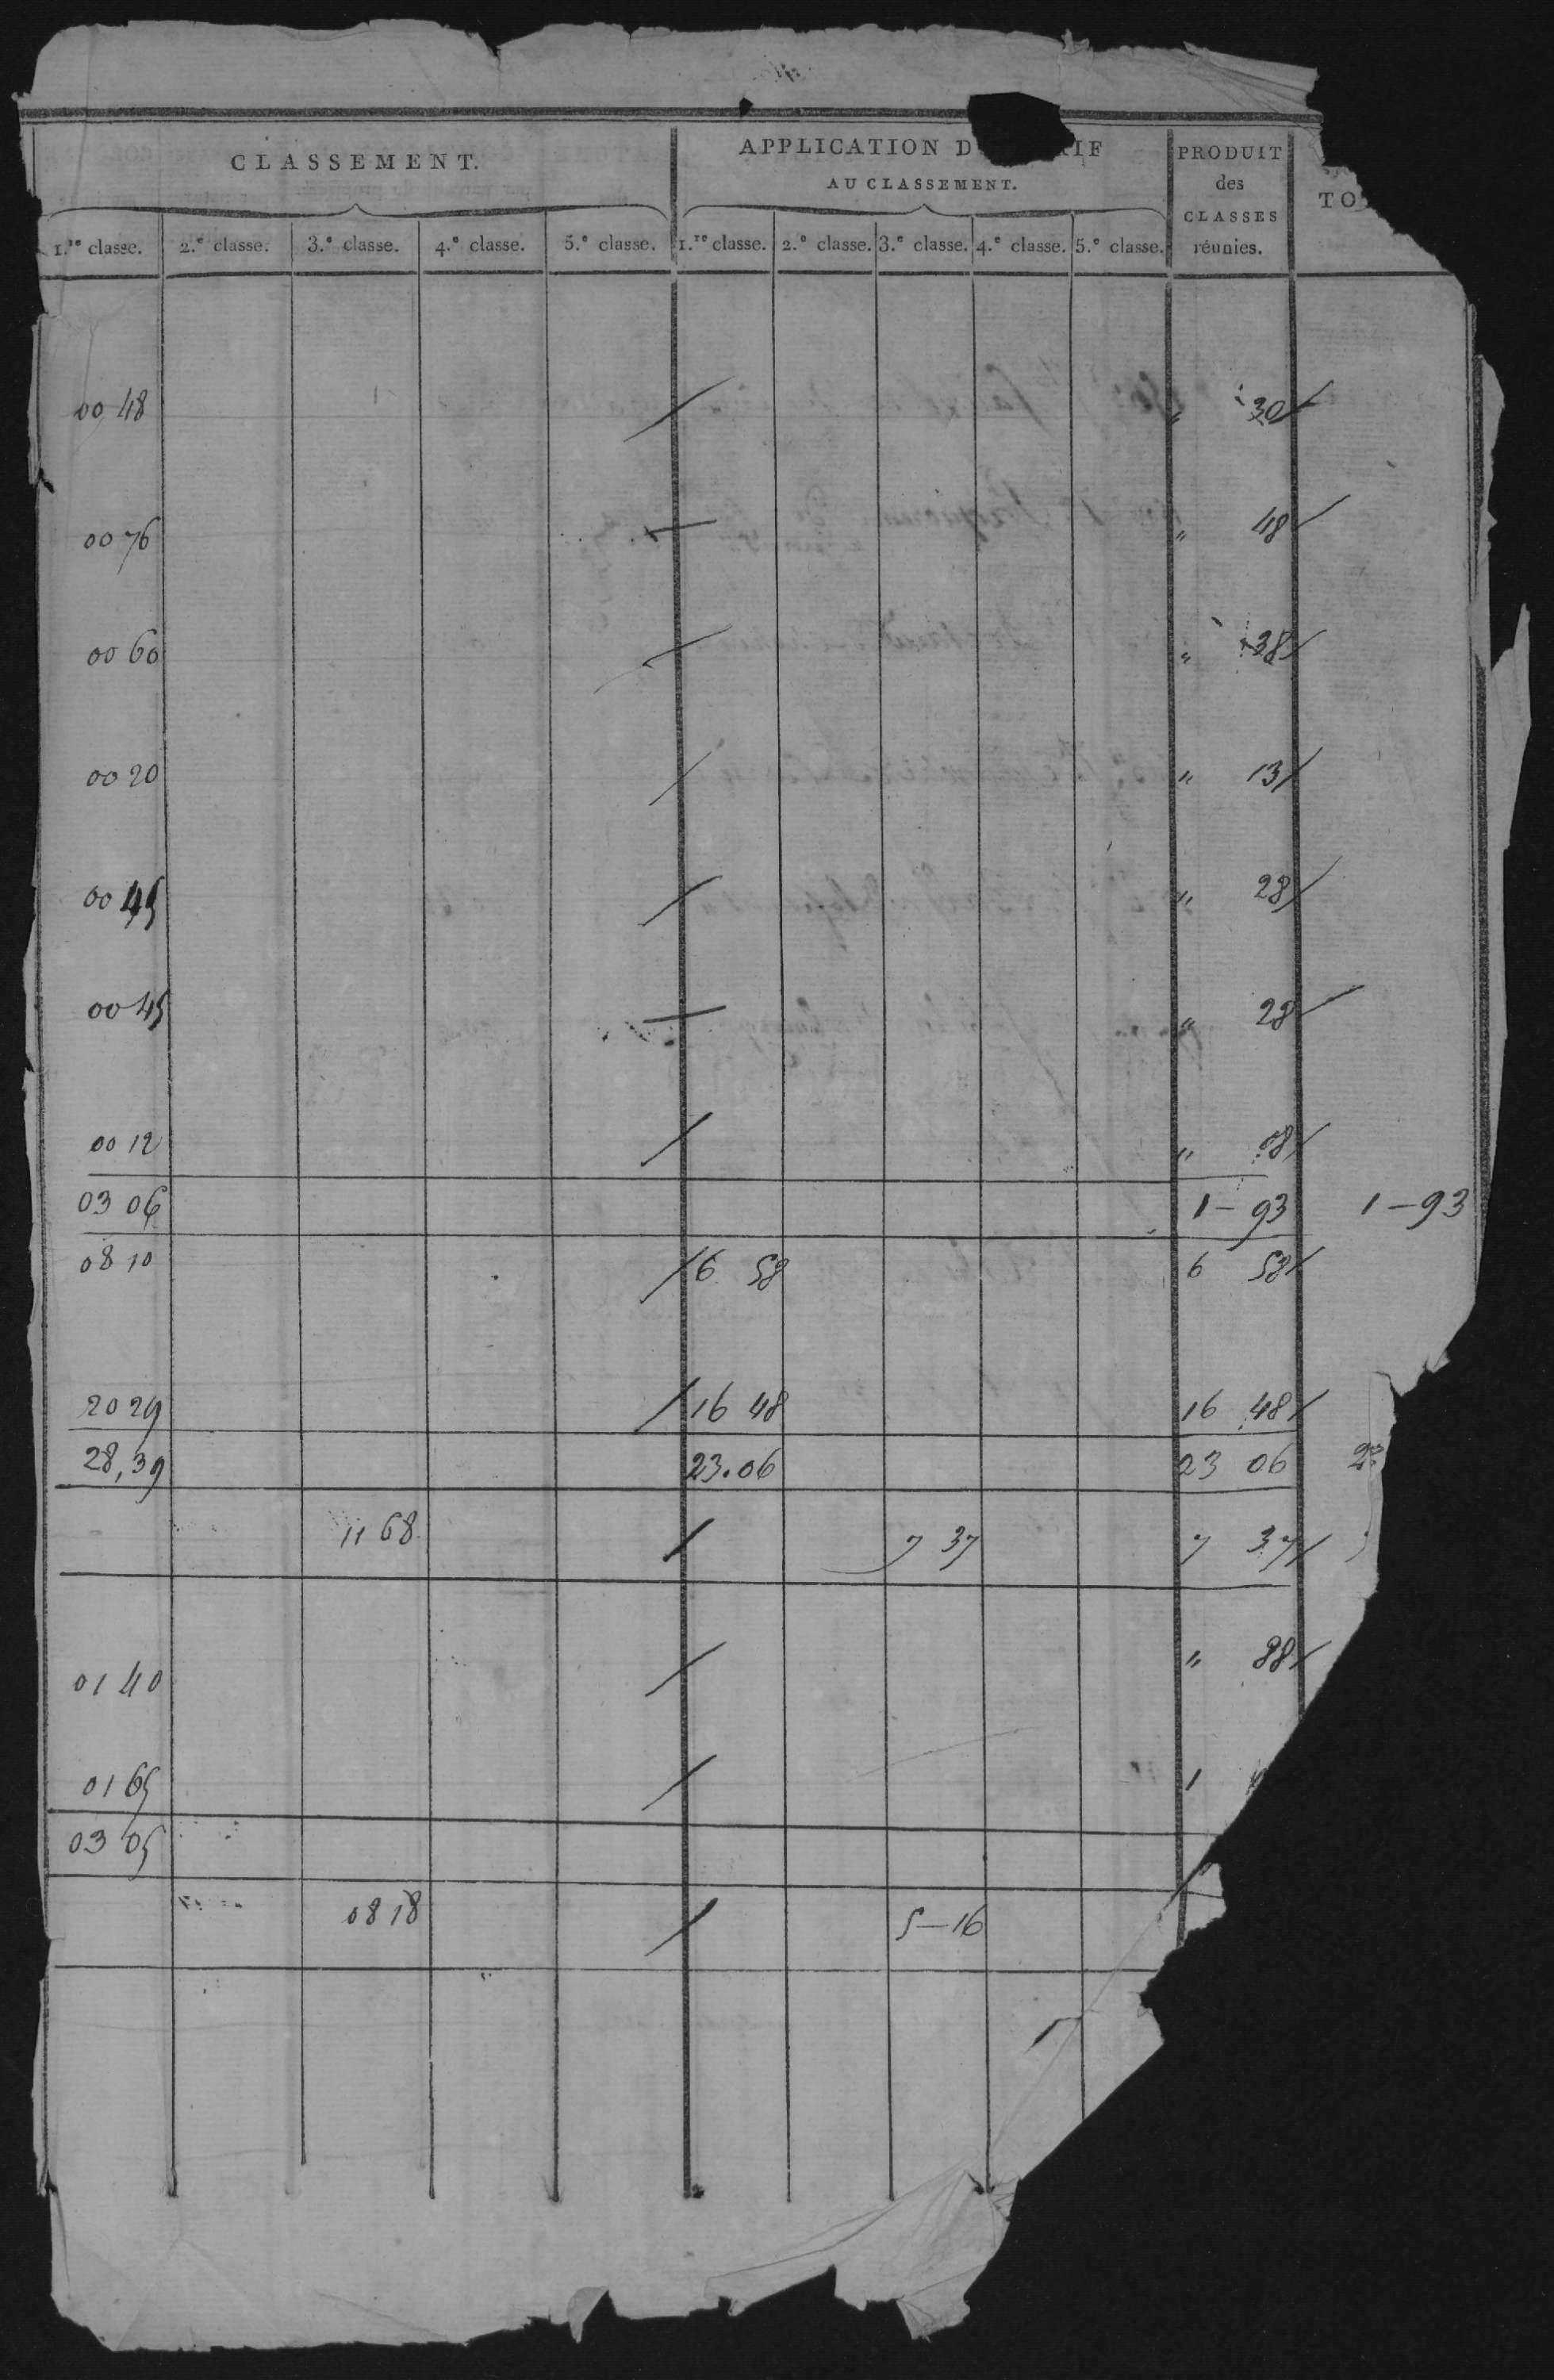 CLASSEMENT. APPLICATION D RIF AU CLASSEMENT. PRODUIT des CLASSES réunies. TO
1.re classe. 2.e classe. 3.e classe. 4.e classe. 5.e classe. 1.re classe. 2.e classe. 3.e classe. 4.e classe. 5.e classe.
00 48 " 30
00 76 " 48
00 60 " 38
00 20 " 13
00 45 " 28
00 45 " 28
00 12 " 08
03 06 1 - 93 1 - 93
08 10 6 58 6 58
20 29 16 48 16 48
28,39 23.06 23 06
11 68 7 37 7 37
01 40 " 88
01 65 1
03 05
08 18 5 - 16